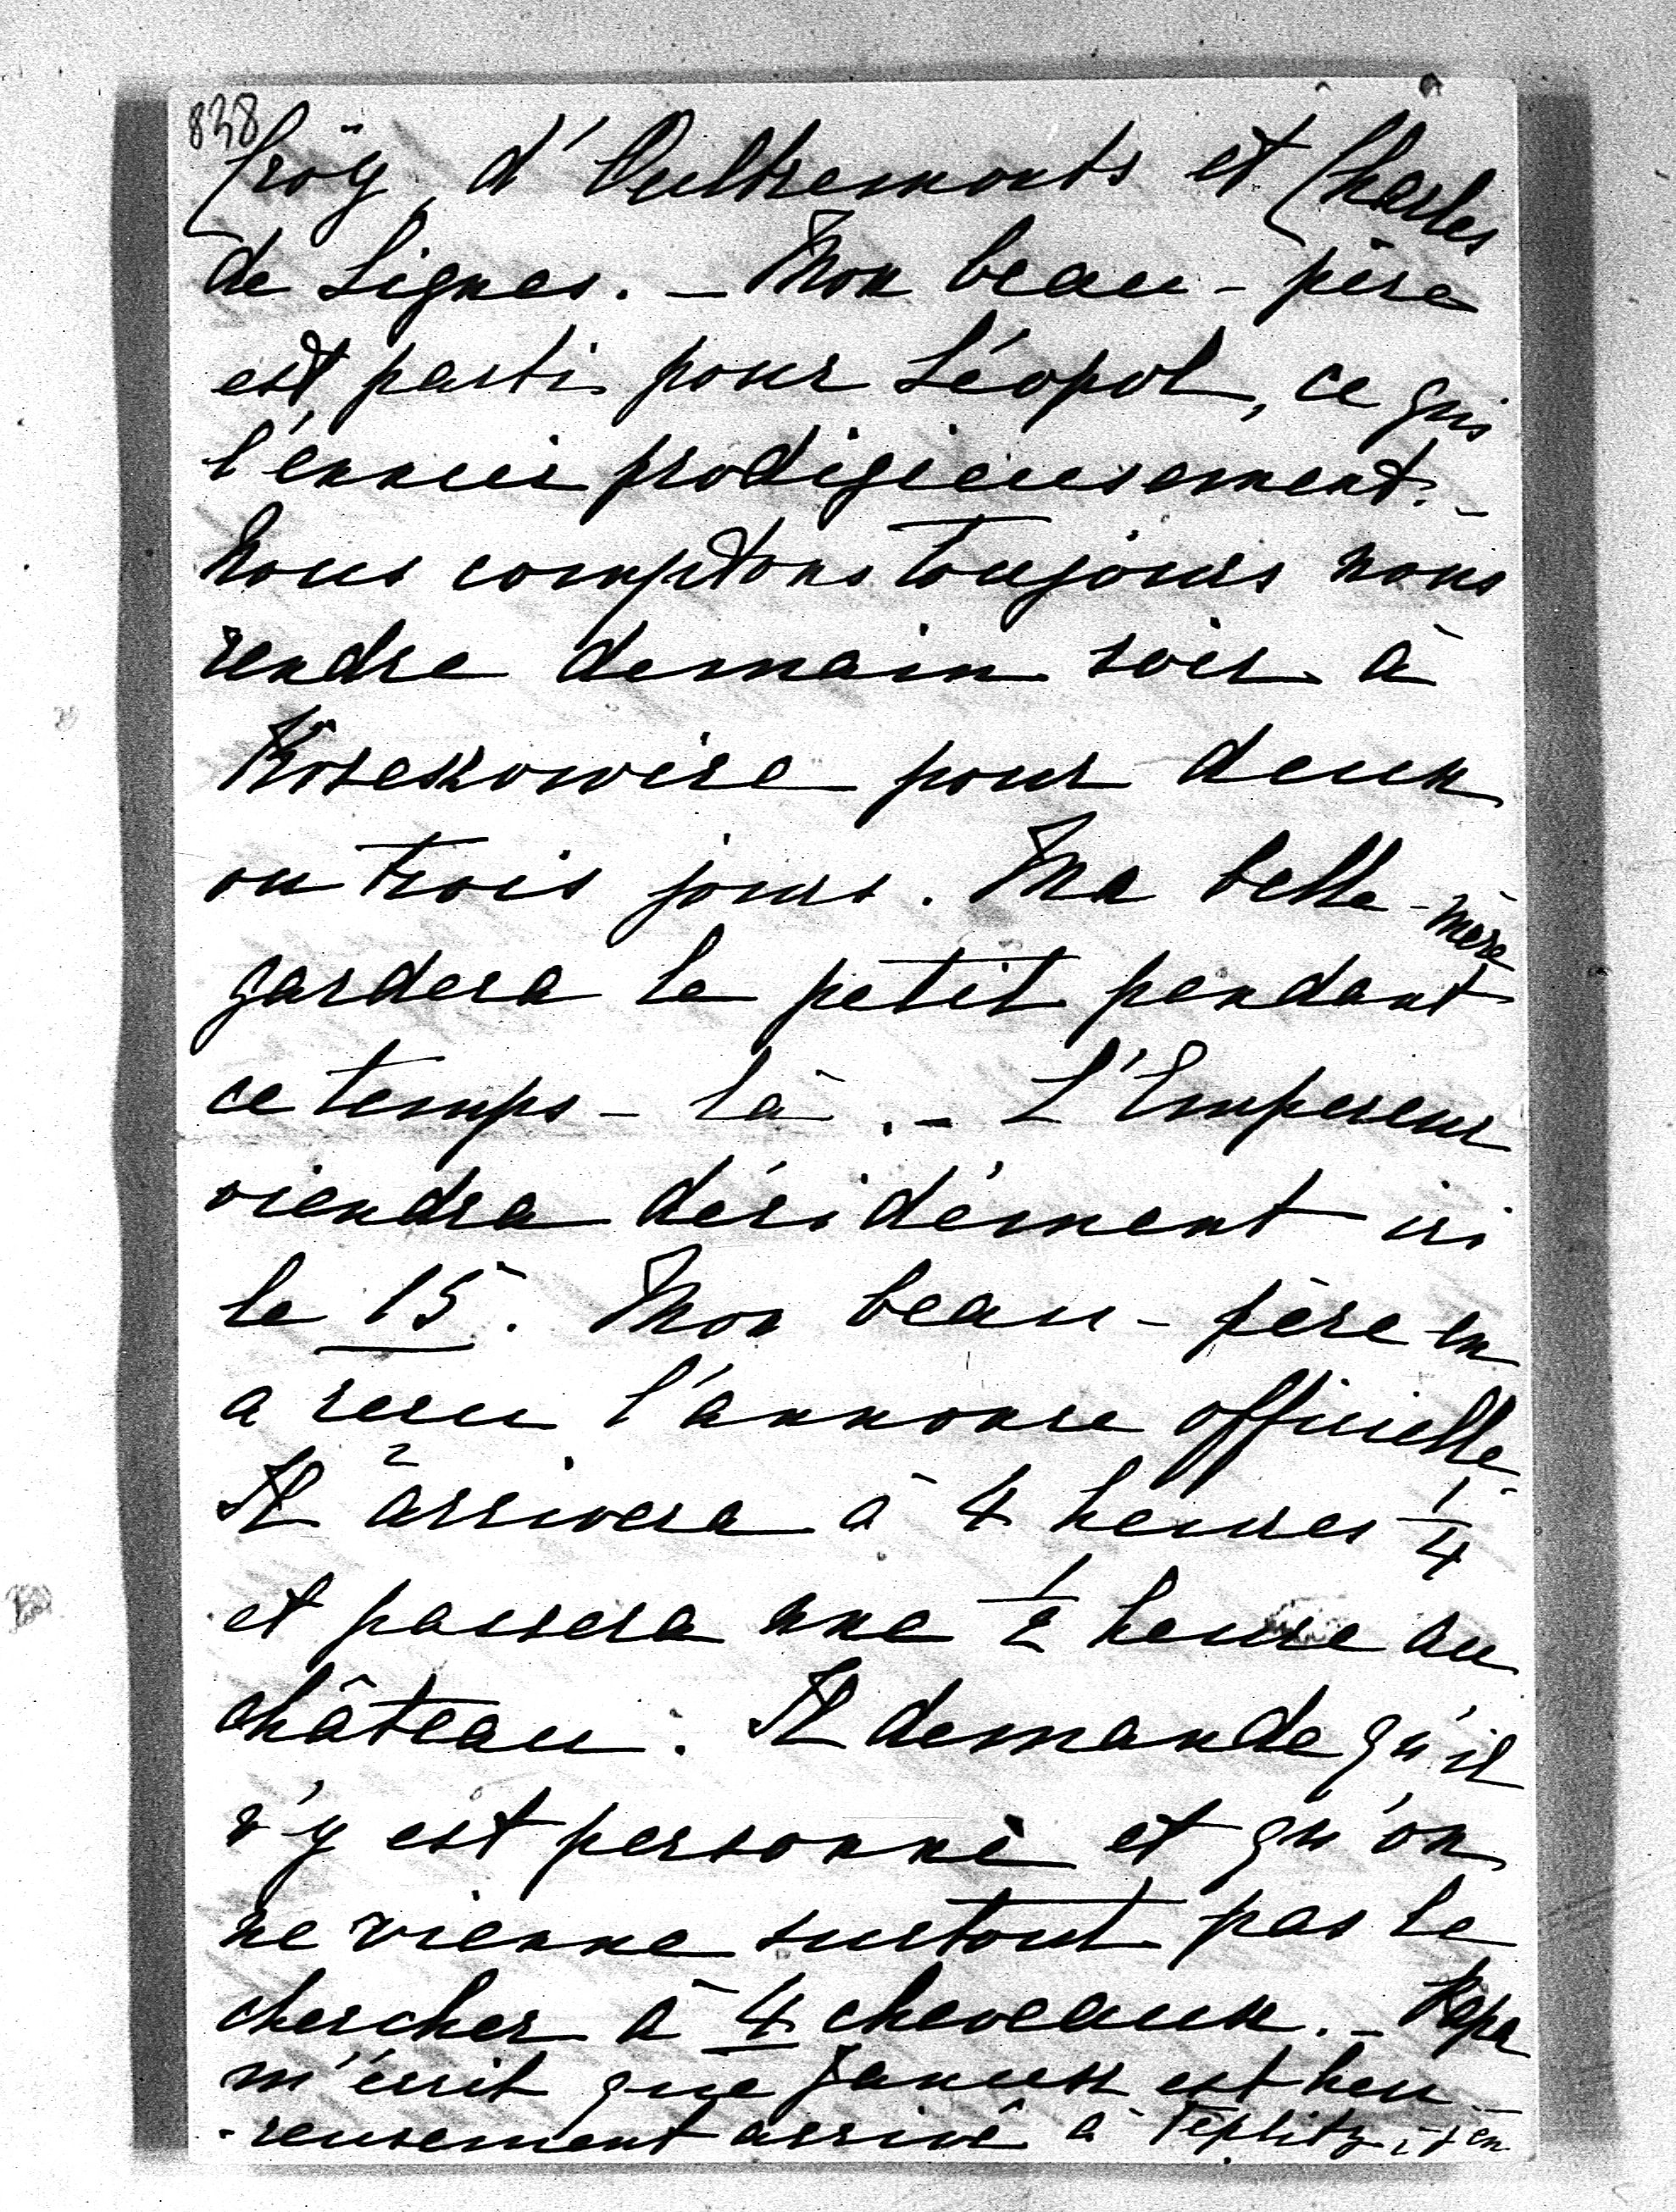 838
Croÿ, d'Oultremonts et Charles
de Lignes. – Mon beau-père
est parti pour Léopol, ce qui
l'ennui prodigieusement. –
Nous comptons toujours nous
rendre demain soir à
pour deux
ou trois jours. Ma belle-mère
gardera le petit pendant
ce temps-là. – L'Empereur
viendra décidément ici
le 15. Mon beau-père en
a reçu l'annonce officielle.
Il arrivera à 4 heures 1/4
et passera une 1/2 heure au
château. Il demande qu'il
n'y est personne et qu'on
ne vienne surtout pas le
chercher à 4 cheveaux. – Papa
m'écrit que Janusz est heu-
-reusement arrivé à Téplitz